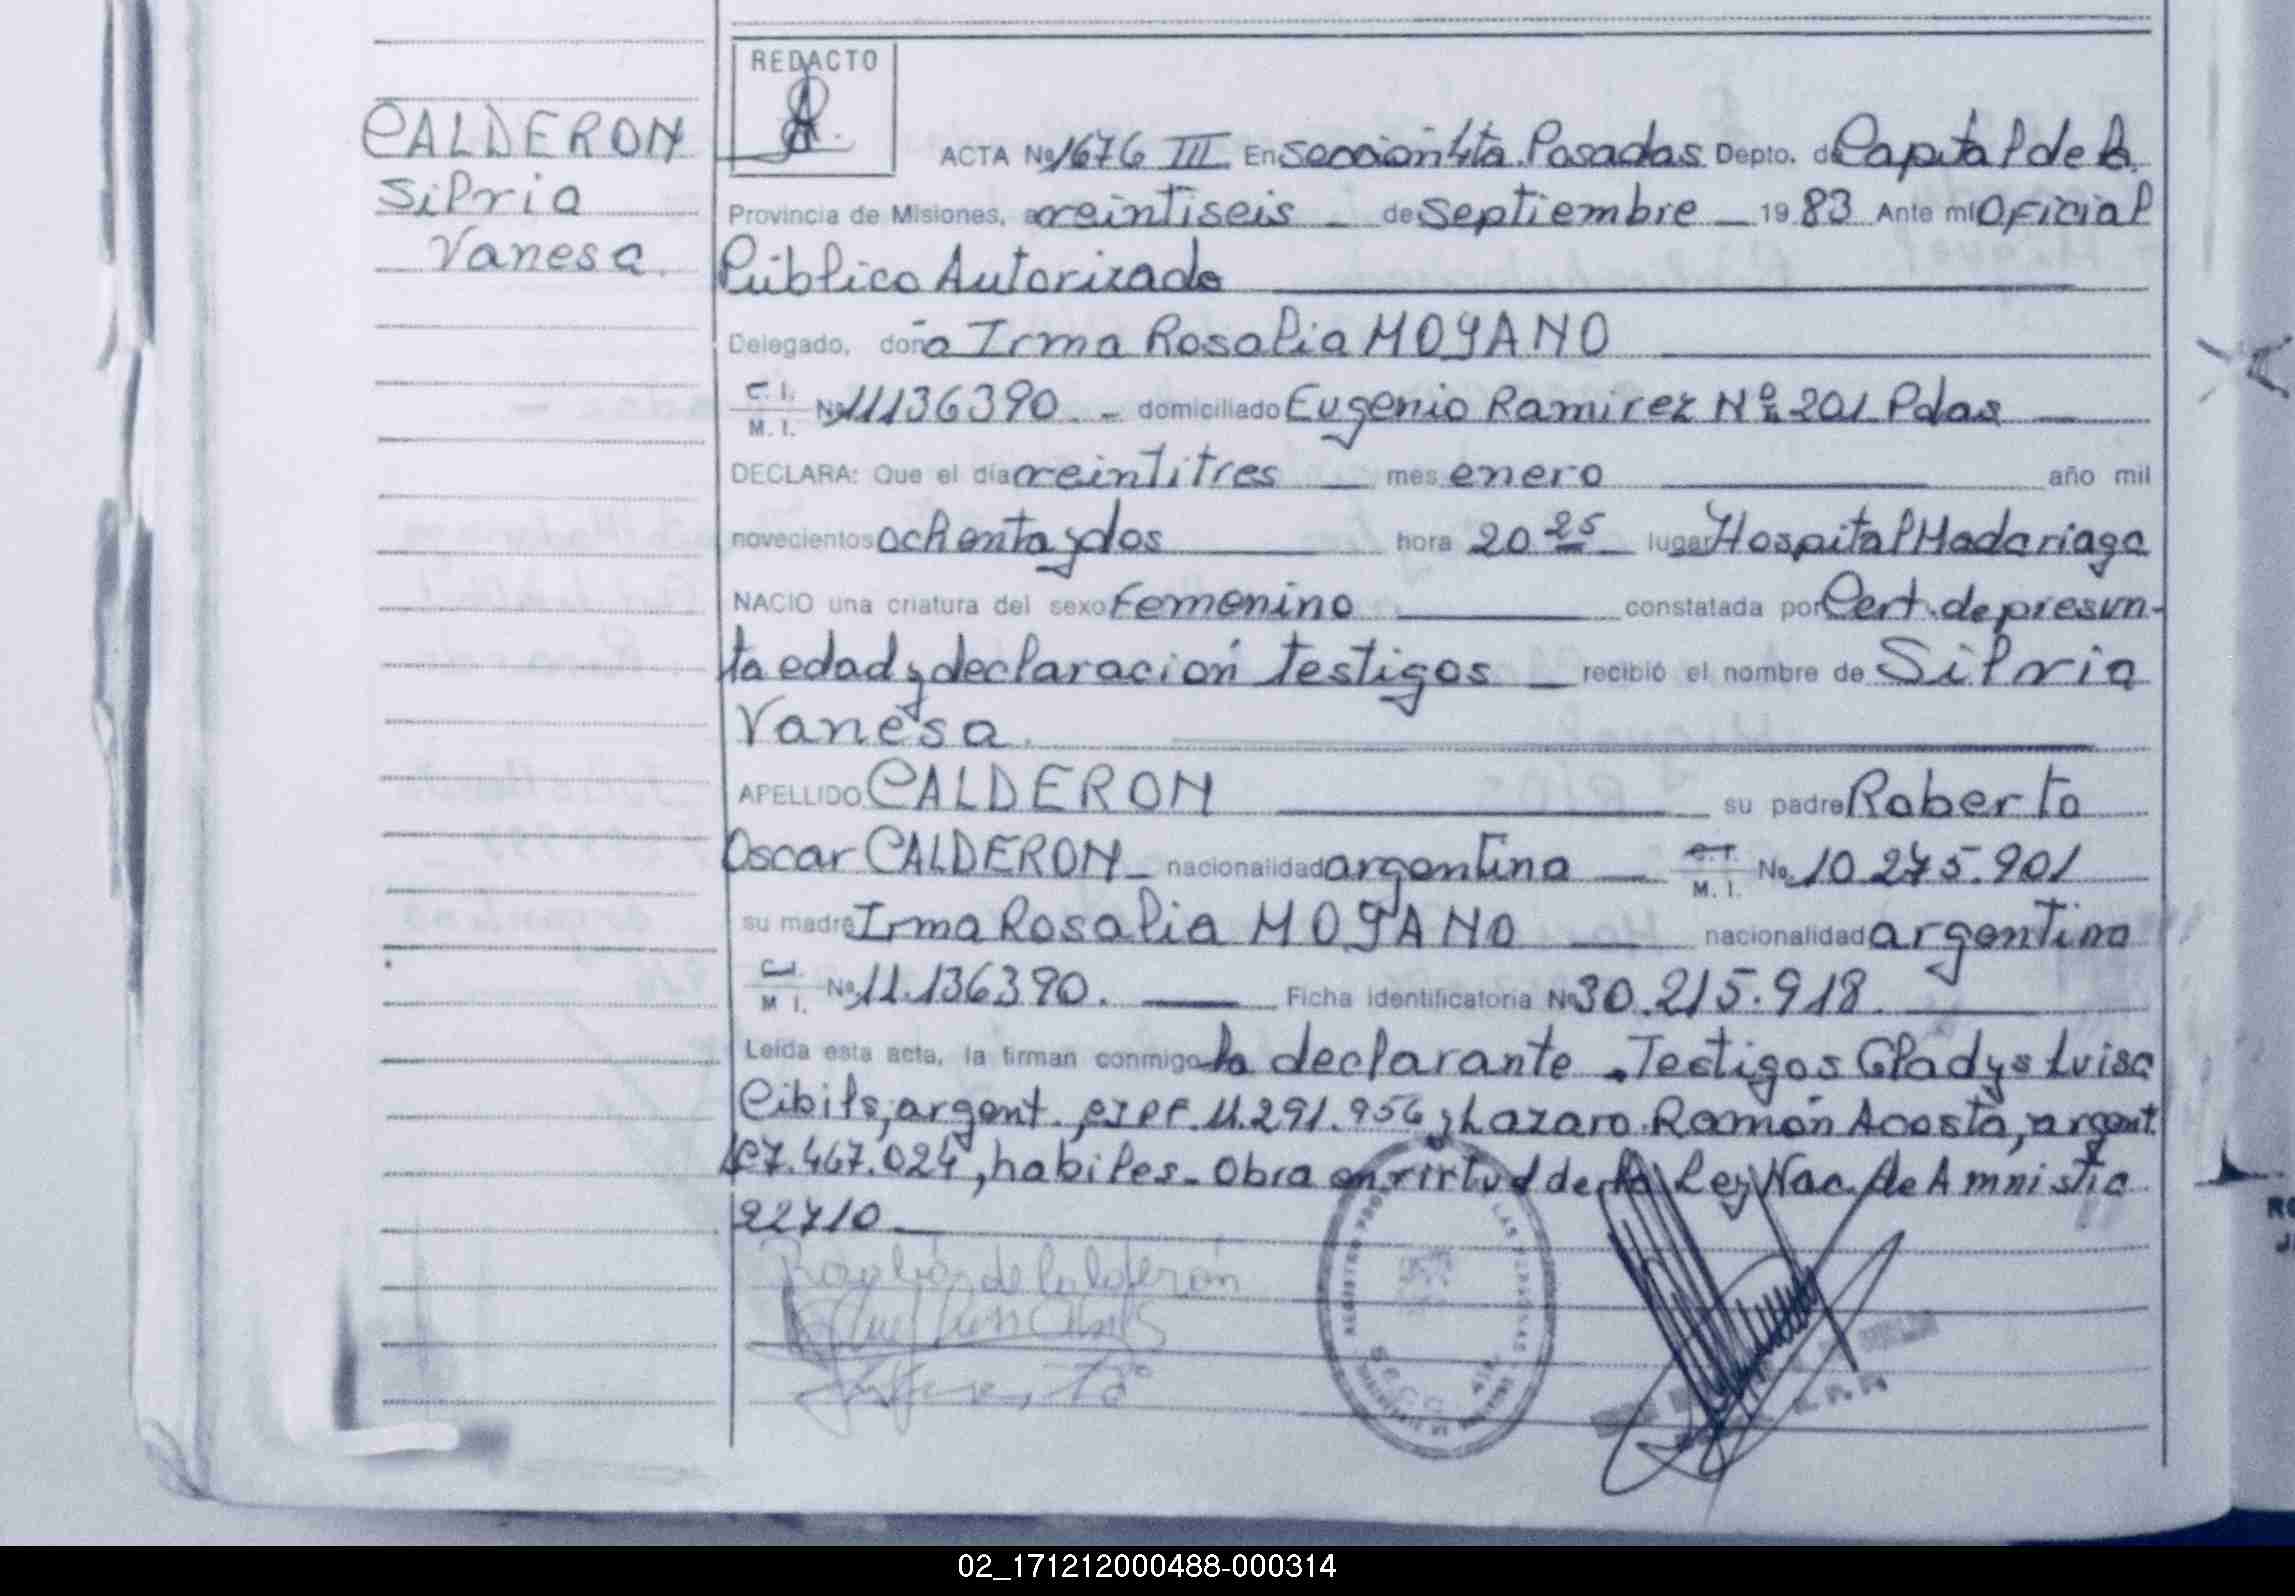 REDACTO
CALDERON
Silvia
Vanesa
ACTA Nº 1676 III En sección 4ta. Posadas Depto. de Capital de la
Provincia de Misiones, a veintiseis de Septiembre 19 83 Ante mí Oficial
Público Autorizado
Delegado, doña Irma Rosalia MOYANO
C. I. M. I. Nº 11136390. - domiciliado Eugenio Ramirez Nº 201 Pdas
DECLARA: Que el día veintitres mes enero año mil
novecientos ochenta y dos hora 20 25 lugar Hospital Madariaga
NACIO una criatura del sexo Femenino constatada por Cert. de presun-
ta edad y declaración testigos recibió el nombre de Silvia
Vanesa.
APELLIDO CALDERON su padre Roberto
Oscar CALDERON nacionalidad argentina C. I. M. I. Nº 10.275.901
su madre Irma Rosalia MOYANO nacionalidad argentina
C. I. M. I. Nº 11.136390. Ficha identificatoria Nº 30.215.918.
Leída esta acta, la firman conmigo la declarante. Testigos Gladys Luisa
Cibils, argent. 11.291.956 y Lazaro Ramón Acosta, argent.
7.467.024, habiles. Obra en virtud de la Ley Nac. de Amnistia
22710
de Calderón
REGISTRO LAS PERSONAS
SECC. 4ta.
02_171212000488-000314